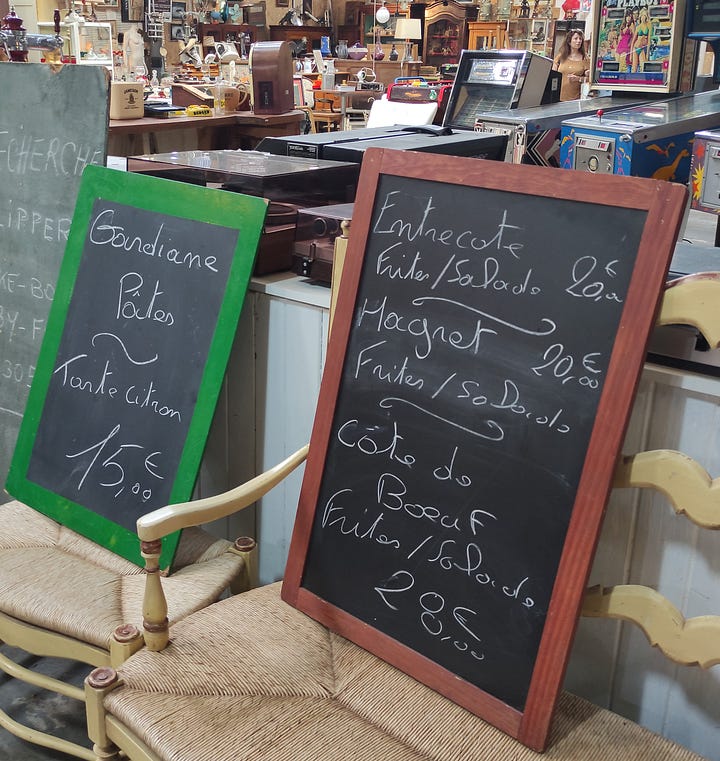 ECHERCHE
LIPPER
Gardiane
Pâtes
Tarte citron
15,00€
Entrecote
Frites/Salade 20,00€
Magret
20,00€
Frites/Salade
Côte de
Boeuf
Frites/Salade
28,00€
PLAYBOY